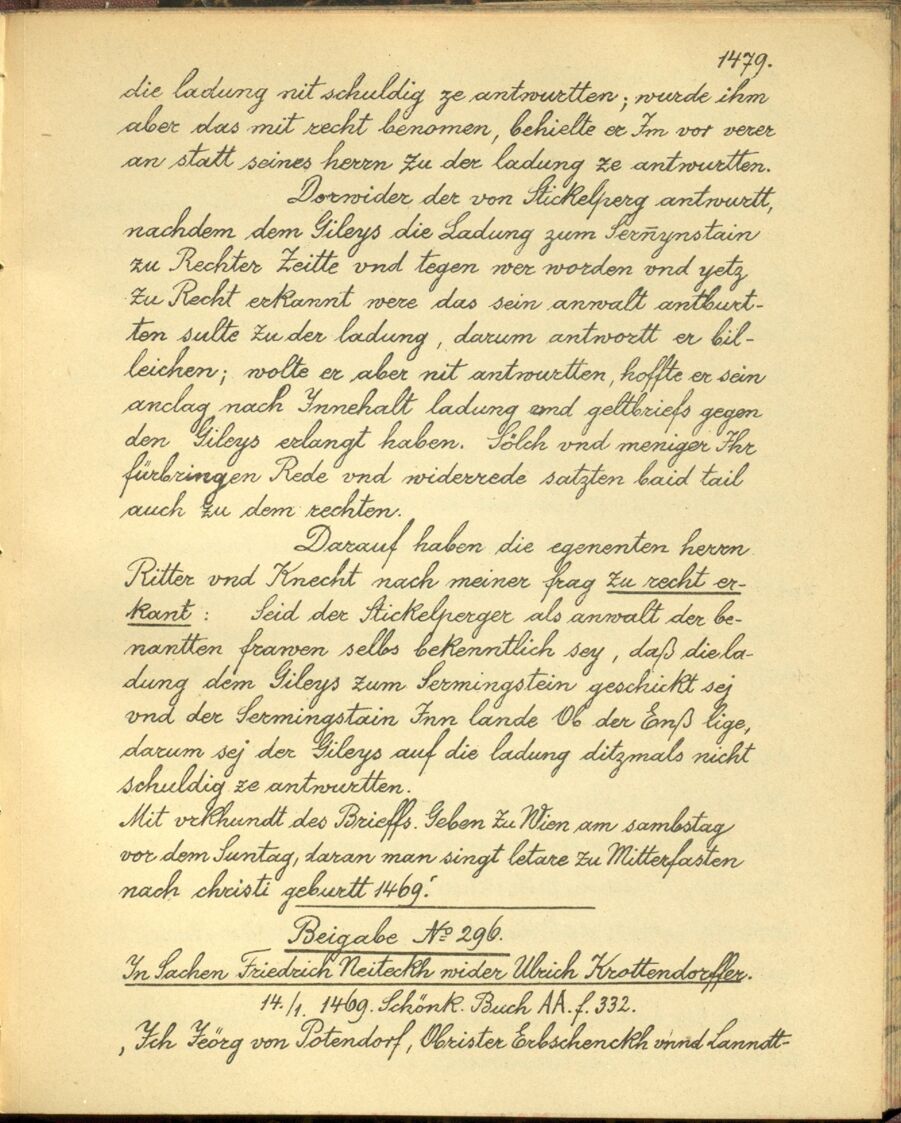 1479.
die ladung nit schuldig ze antwurtten; wurde ihm
aber das mit recht benomen, behielte er Im vor verer
an statt seines herrn zu der ladung ze antwurtten.
Dorwider der von Stickelperg antwurtt,
nachdem dem Gileys die Ladung zum Serm̄ynstain
zu Rechter Zeitte vnd tegen wer worden vnd yetz
zu Recht erkannt were das sein anwalt antburt-
ten sulte zu der ladung, darum antwortt er bil-
leichen; wolte er aber nit antwurtten, hoffte er sein
anclag nach Innehalt ladung vnd geltbriefs gegen
den Gileys erlangt haben. Sölch vnd meniger Ihr
fürbringen Rede vnd widerrede satzten baid tail
auch zu dem rechten.
Darauf haben die egenenten herrn
Ritter vnd Knecht nach meiner frag zu recht er-
kant: Seid der Stickelperger als anwalt der be-
nantten frawen selbs bekenntlich sey, daß die la-
dung dem Gileys zum Sermingstein geschickt sej
vnd der Sermingstain Inn lande Ob der Enß lige,
darum sej der Gileys auf die ladung ditzmals nicht
schuldig ze antwurtten.
Mit vrkhundt des Brieffs. Geben zu Wien am sambstag
vor dem Suntag, daran man singt letare zu Mitterfasten
nach christi geburtt 1469.'
Beigabe No 296.
In Sachen Friedrich Neiteckh wider Ulrich Krottendorffer.
14./1. 1469. Schönk. Buch AA. f. 332.
‚Ich Jeörg von Potendorf, Obrister Erbschenckh vnnd Lanndt-